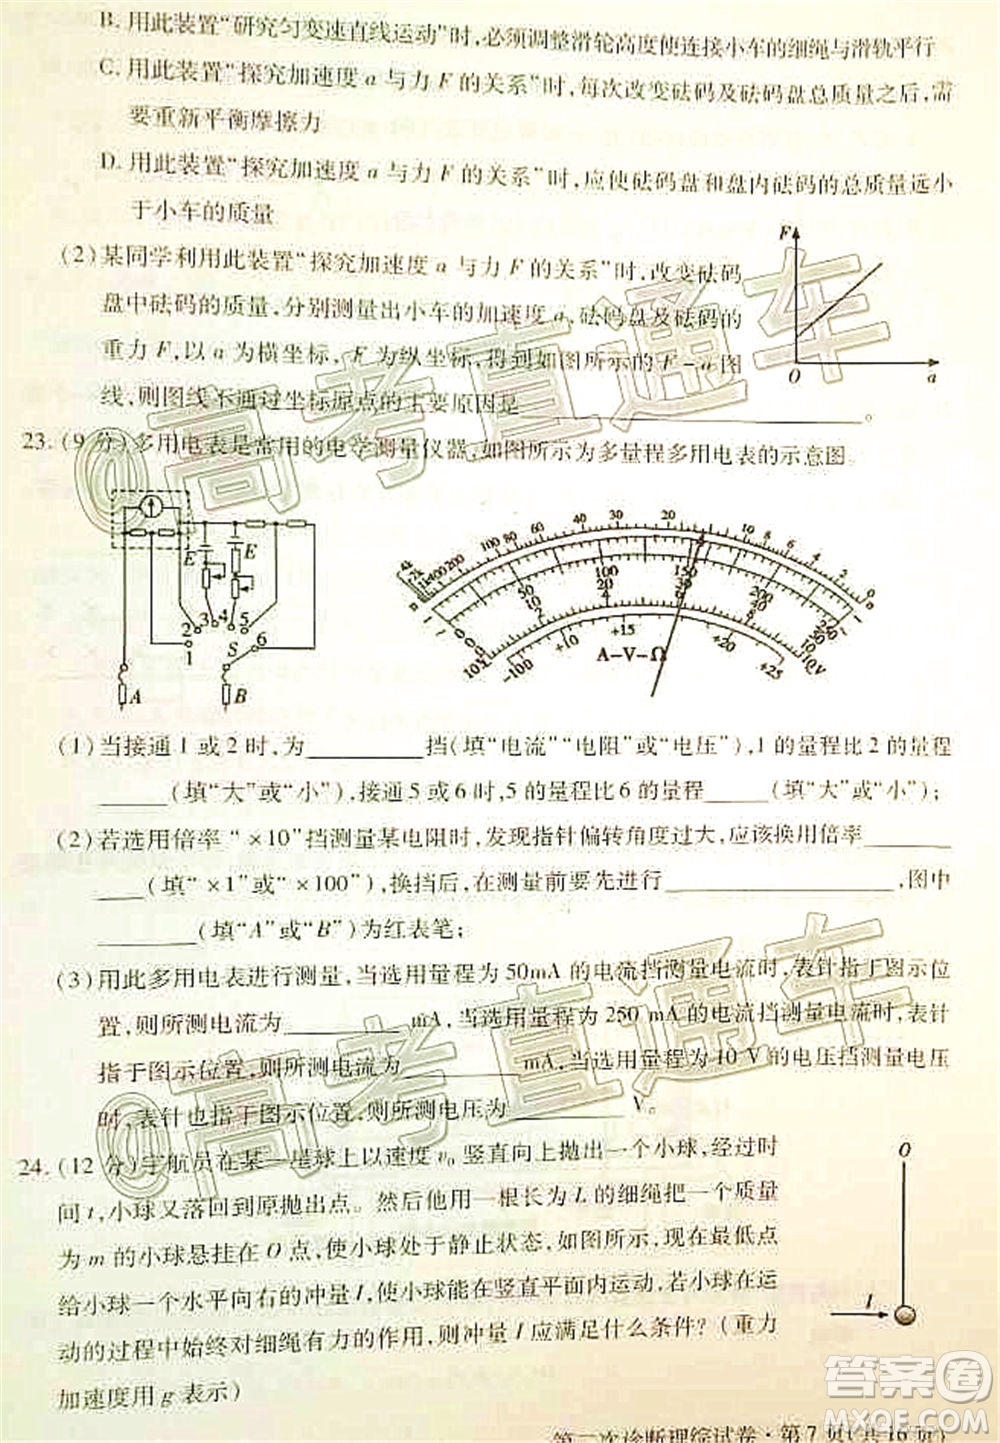 B. 用此装置“研究匀变速直线运动”时,必须调整滑轮高度使连接小车的细绳与滑轨平行
C. 用此装置“探究加速度 a 与力 F 的关系”时,每次改变砝码及砝码盘总质量之后,需
要重新平衡摩擦力
D. 用此装置“探究加速度 a 与力 F 的关系”时,应使砝码盘和盘内砝码的总质量远小
于小车的质量
(2)某同学利用此装置“探究加速度 a 与力 F 的关系”时,改变砝码
盘中砝码的质量,分别测量出小车的加速度 a、砝码盘及砝码的
重力 F,以 a 为横坐标,F 为纵坐标,得到如图所示的 F-a 图
线,则图线不通过坐标原点的主要原因是________。
F
O
a
23. (9 分)多用电表是常用的电学测量仪器,如图所示为多量程多用电表的示意图。
E
E
1
2
3
4
5
6
S
A
B
A-V-Ω
(1)当接通 1 或 2 时,为________挡(填“电流”“电阻”或“电压”),1 的量程比 2 的量程
______(填“大”或“小”);接通 5 或 6 时,5 的量程比 6 的量程_____(填“大”或“小”);
(2)若选用倍率“×10”挡测量某电阻时,发现指针偏转角度过大,应该换用倍率______
____(填“×1”或“×100”),换挡后,在测量前要先进行______________,图中
______(填“A”或“B”)为红表笔;
(3)用此多用电表进行测量,当选用量程为 50mA 的电流挡测量电流时,表针指于图示位
置,则所测电流为________mA;当选用量程为 250 mA 的电流挡测量电流时,表针
指于图示位置,则所测电流为________mA。当选用量程为 10 V 的电压挡测量电压
时,表针也指于图示位置,则所测电压为________V。
24. (12 分)宇航员在某一星球上以速度 v₀ 竖直向上抛出一个小球,经过时
间 t,小球又落回到原抛出点。然后他用一根长为 L 的细绳把一个质量
为 m 的小球悬挂在 O 点,使小球处于静止状态,如图所示。现在最低点
给小球一个水平向右的冲量 I,使小球能在竖直平面内运动,若小球在运
动的过程中始终对细绳有力的作用,则冲量 I 应满足什么条件?(重力
加速度用 g 表示)
O
I
第二次诊断理综试卷·第 7 页(共 16 页)
@高考直通车
@高考直通车
答案圈
MXQE.COM